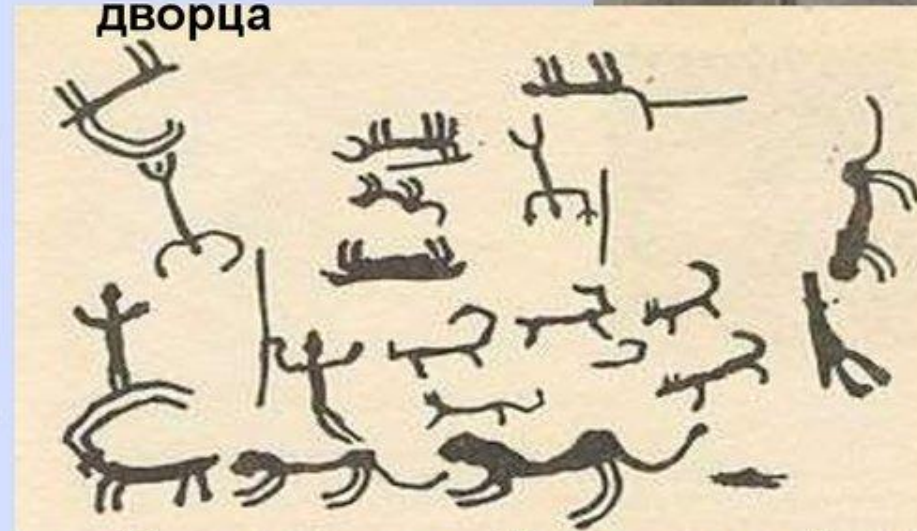 дворца